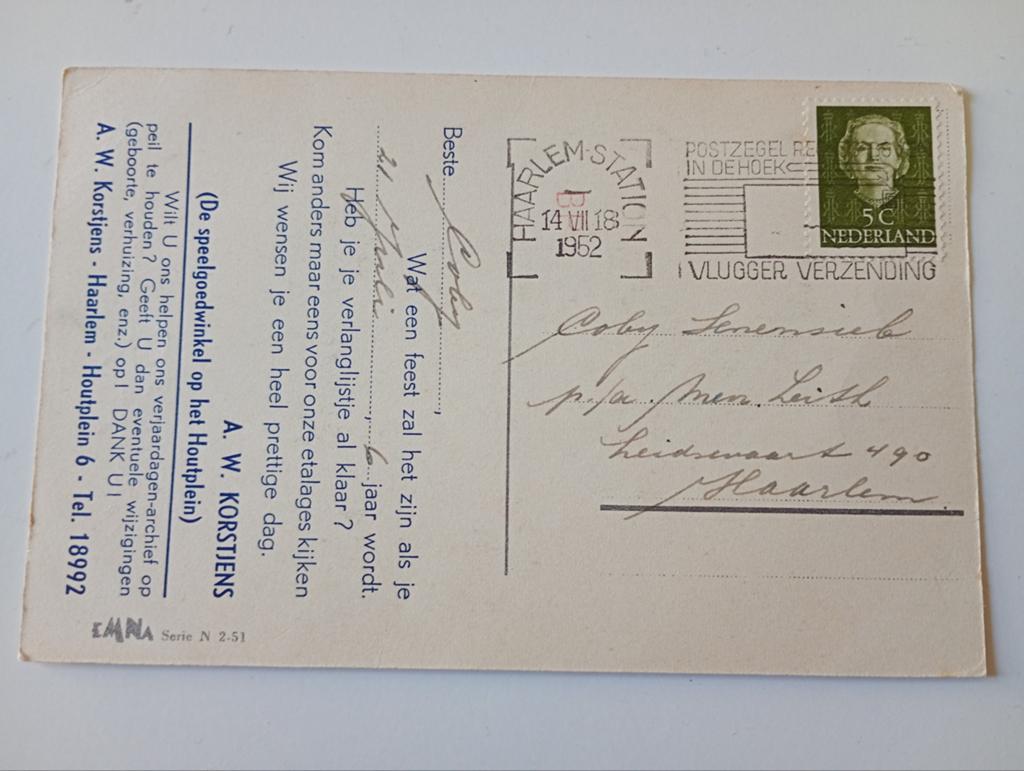 Beste Coby,
Wat een feest zal het zijn als je
21 , 6 jaar wordt.
Heb je je verlanglijstje al klaar?
Kom anders maar eens voor onze etalages kijken
Wij wensen je een heel prettige dag.
A. W. KORSTJENS
(De speelgoedwinkel op het Houtplein)
Wilt U ons helpen ons verjaardagen-archief op
peil te houden? Geeft U dan eventuele wijzigingen
(geboorte, verhuizing, enz.) op! DANK U!
A. W. Korstjens - Haarlem - Houtplein 6 - Tel. 18992
EMNA Serie N 2-51
HAARLEM-STATION
B
14 VII 18
1952
POSTZEGEL RE
IN DE HOEK
VLUGGER VERZENDING
5 C
NEDERLAND
Coby
p/a. Leidsevaart 490
Haarlem